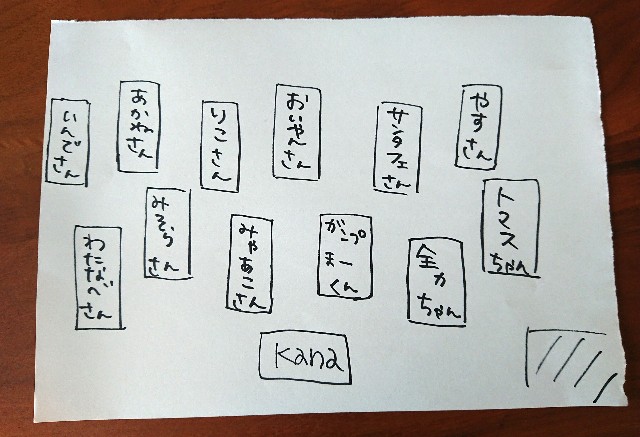 いんでさん
あかねさん
りこさん
おいやんさん
サンタフェさん
やすさん
わたなべさん
みそらさん
みやあこさん
がンプまーくん
全力ちゃん
トマスちゃん
Kana